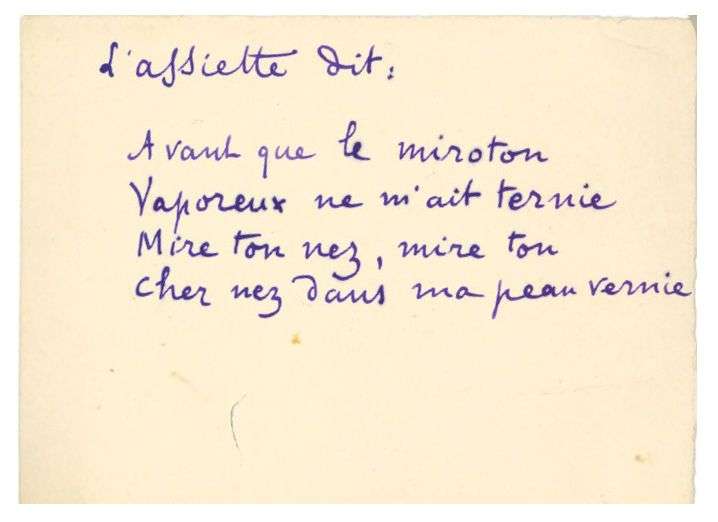 L'assiette dit:
Avant que le miroton
Vaporeux ne m'ait ternie
Mire ton nez, mire ton
Cher nez dans ma peau vernie